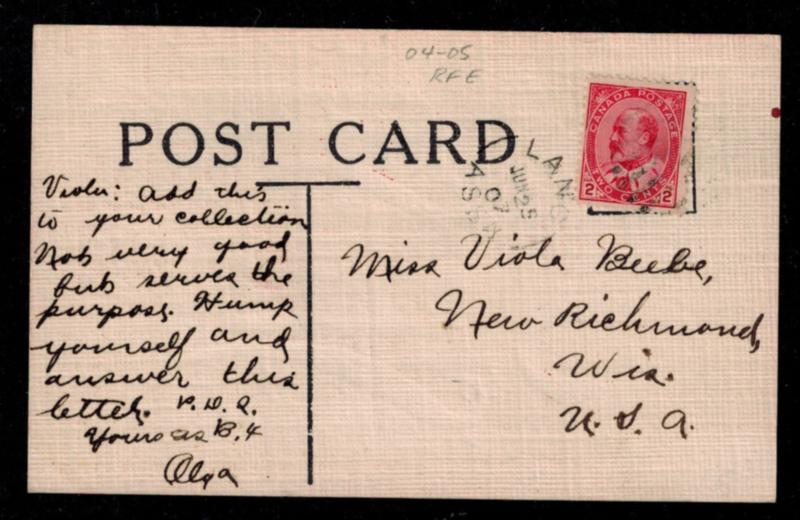 04-05
RFE
CANADA POSTAGE
2 TWO CENTS 2
POST CARD
JUN 25
07
Viola: Add this
to your collection
Not very good
but serves the
purpose. Hump
yourself and
answer this
letter. P.D.Q.
Yours as B.4
Olga
Miss Viola Beebe,
New Richmond,
Wis.
U.S.A.